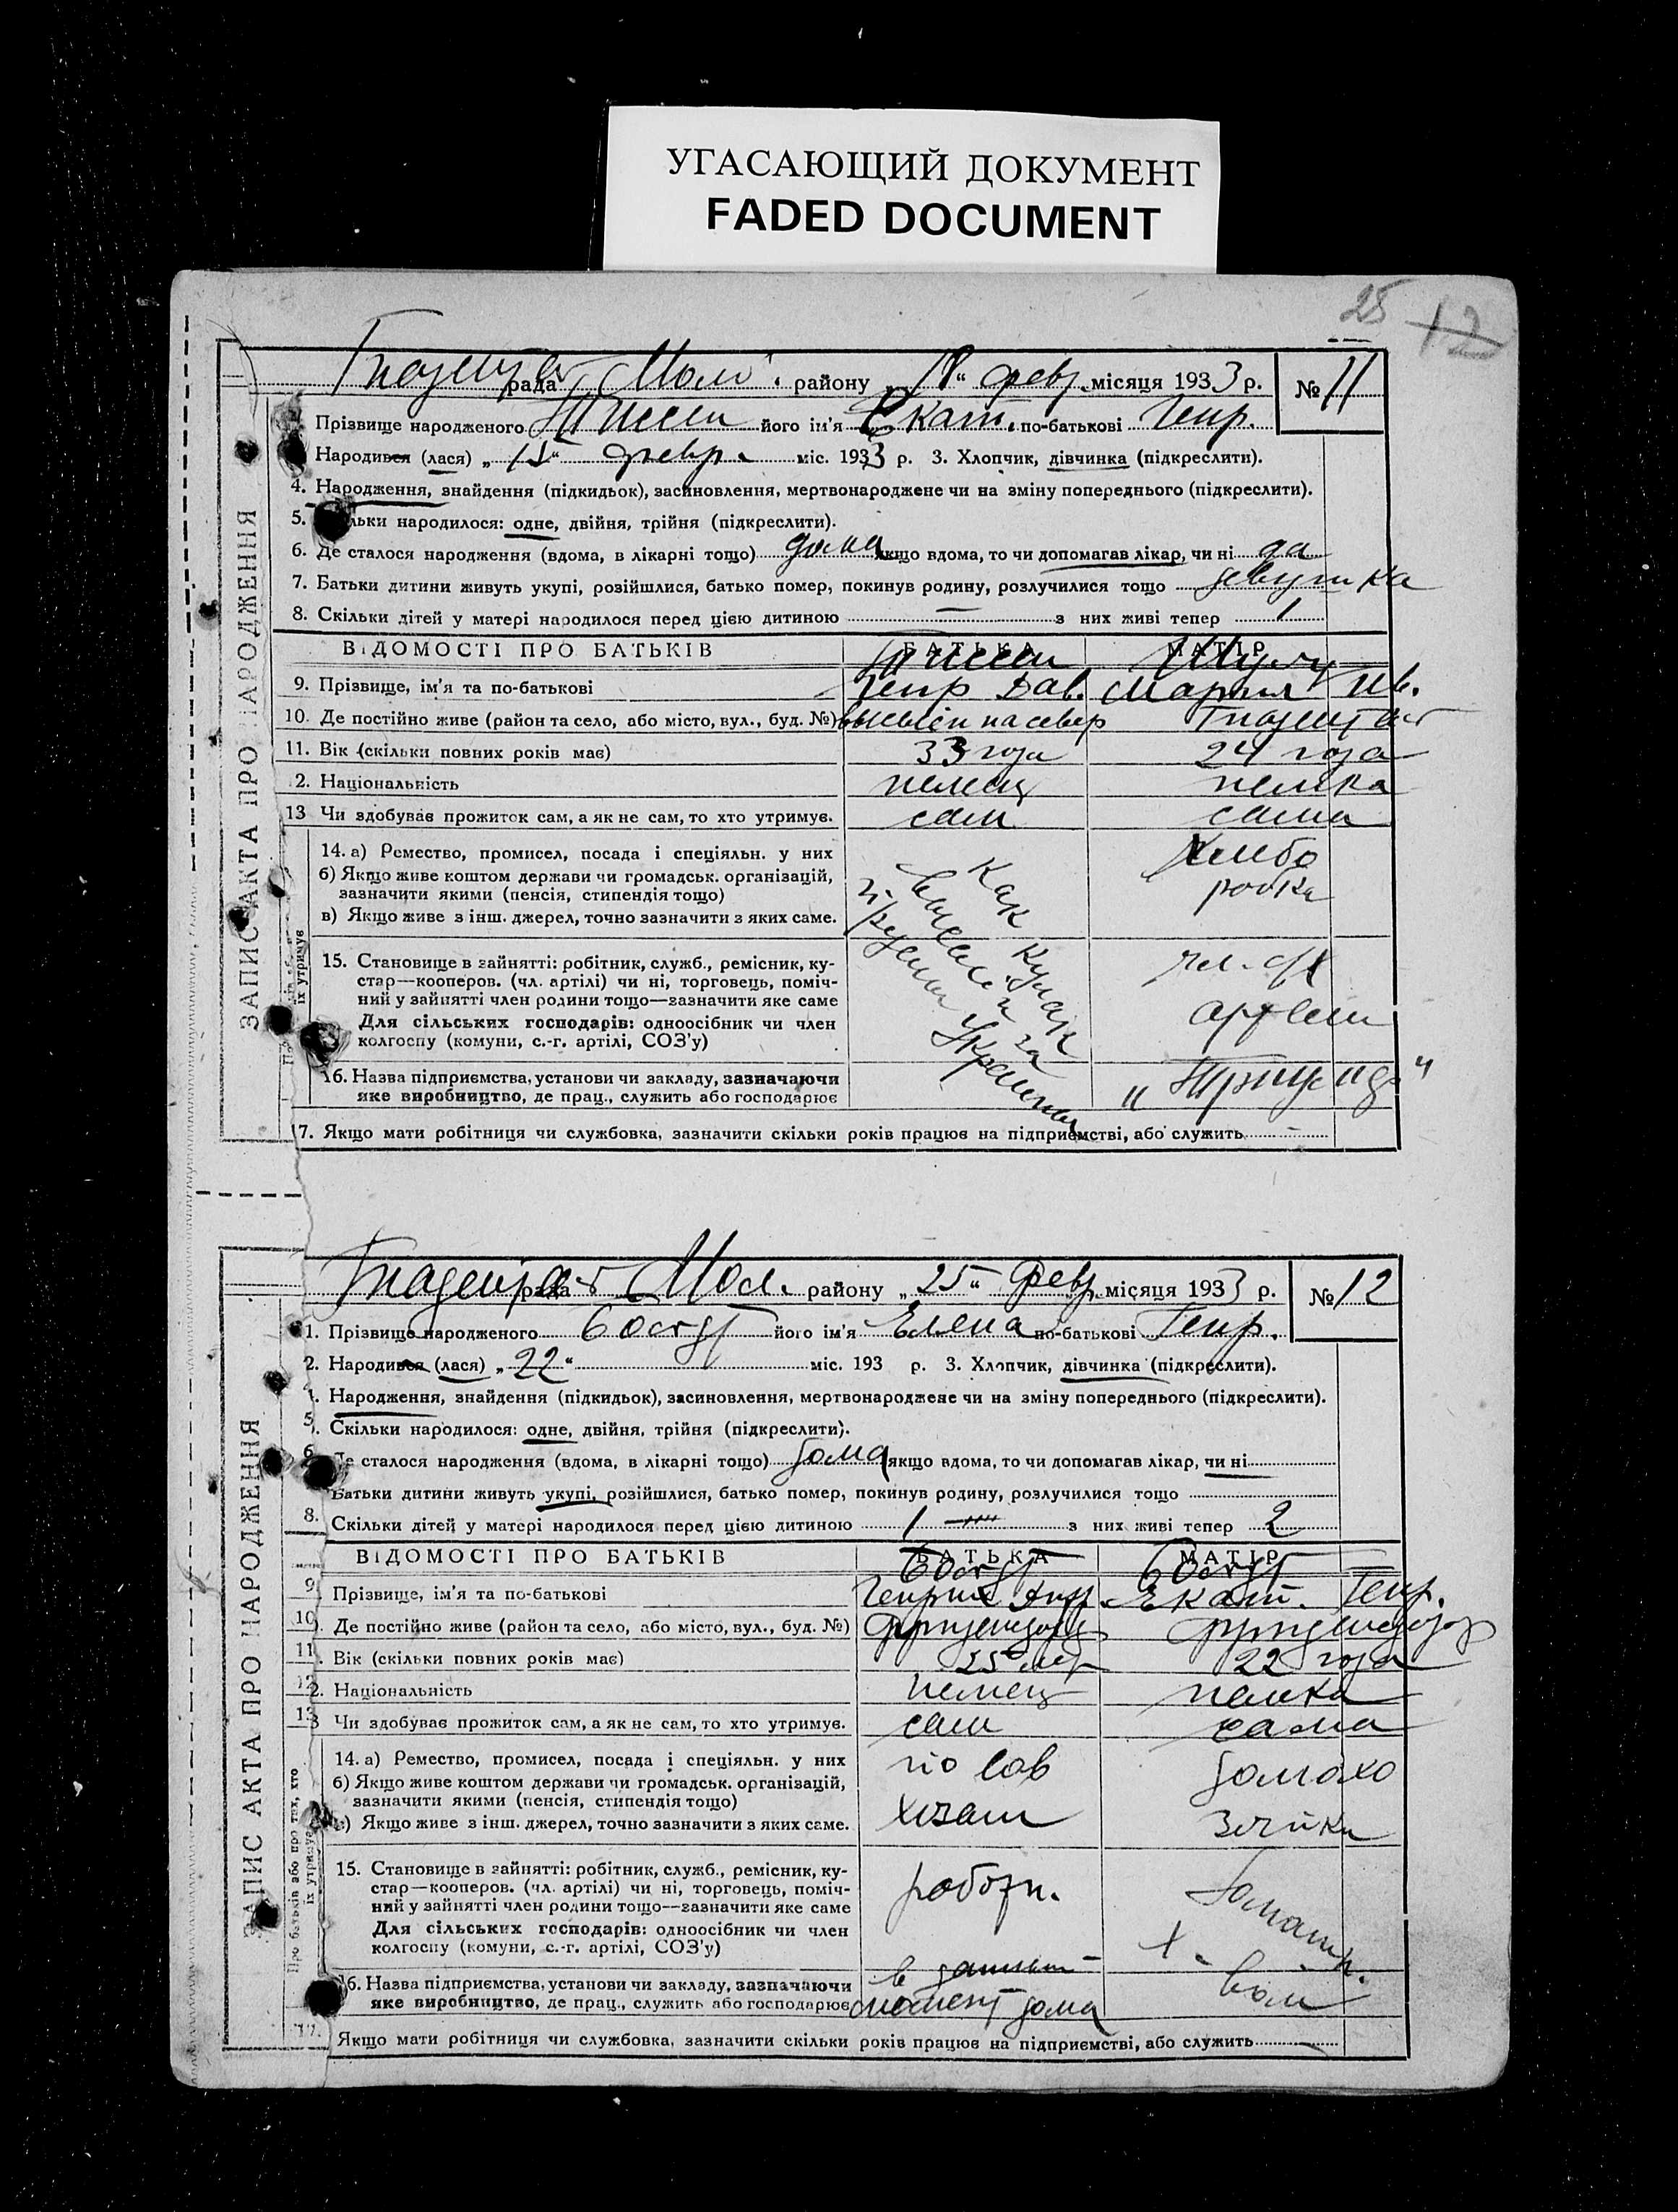 УГАСАЮЩИЙ ДОКУМЕНТ
FADED DOCUMENT
25 12
рада Мол. району „18“ февр. місяця 1933 р. № 11
Прізвище народженого його ім'я Екат. по-батькові Генр.
Народився (лася) „15“ февр. міс. 1933 р. 3. Хлопчик, дівчинка (підкреслити).
4. Народження, знайдення (підкидьок), засиновлення, мертвонароджене чи на зміну попереднього (підкреслити).
5. льки народилося: одне, двійня, трійня (підкреслити).
6. Де сталося народження (вдома, в лікарні тощо) дома якщо вдома, то чи допомагав лікар, чи ні да
7. Батьки дитини живуть укупі, розійшлися, батько помер, покинув родину, розлучилися тощо девушка
8. Скільки дітей у матері народилося перед цією дитиною — з них живі тепер 1
ЗАПИС АКТА ПРО НАРОДЖЕННЯ
ВІДОМОСТІ ПРО БАТЬКІВ БАТЬКА МАТІР
9. Прізвище, ім'я та по-батькові Генр Дав. Мария Ив.
10. Де постійно живе (район та село, або місто, вул., буд. №) выслан на север
11. Вік (скільки повних років має) 33 года 24 года
2. Національність немец немка
13 Чи здобував прожиток сам, а як не сам, то хто утримув. сам сама
14. а) Ремество, промисел, посада і спеціяльн. у них
б) Якщо живе коштом держави чи громадськ. організацій,
зазначити якими (пенсія, стипендія тощо)
в) Якщо живе з інш. джерел, точно зазначити з яких саме.
Как кулак
выслан за
пределы Украины
Хлебо
робка
15. Становище в зайнятті: робітник, служб., ремісник, ку-
стар—кооперов. (чл. артілі) чи ні, торговець, поміч-
ний у зайнятті член родини тощо—зазначити яке саме
Для сільських господарів: одноосібник чи член
колгоспу (комуни, с.-г. артілі, СОЗ'у)
чл. с/х
артели
їх утримув
16. Назва підприємства, установи чи закладу, зазначаючи
яке виробництво, де прац., служить або господарює
17. Якщо мати робітниця чи службовка, зазначити скільки років працює на підприємстві, або служить —
рада Мол. району „25“ февр. місяця 1933 р. № 12
1. Прізвище народженого його ім'я Елена по-батькові Генр.
2. Народився (лася) „22“ міс. 193 р. 3. Хлопчик, дівчинка (підкреслити).
Народження, знайдення (підкидьок), засиновлення, мертвонароджене чи на зміну попереднього (підкреслити).
5. Скільки народилося: одне, двійня, трійня (підкреслити).
6. Де сталося народження (вдома, в лікарні тощо) дома якщо вдома, то чи допомагав лікар, чи ні
Батьки дитини живуть укупі, розійшлися, батько помер, покинув родину, розлучилися тощо
8. Скільки дітей у матері народилося перед цією дитиною 1 з них живі тепер 2
ЗАПИС АКТА ПРО НАРОДЖЕННЯ
ВІДОМОСТІ ПРО БАТЬКІВ БАТЬКА МАТІР
9. Прізвище, ім'я та по-батькові Генрих Екат. Генр.
10. Де постійно живе (район та село, або місто, вул., буд. №)
11. Вік (скільки повних років має) 25 лет 22 года
12. Національність немец немка
13 Чи здобував прожиток сам, а як не сам, то хто утримув. сам сама
14. а) Ремество, промисел, посада і спеціяльн. у них
б) Якщо живе коштом держави чи громадськ. організацій,
зазначити якими (пенсія, стипендія тощо)
в) Якщо живе з інш. джерел, точно зазначити з яких саме.
по сов
хозам
домохо
зяйка
Про батьків або про тих, хто
їх утримує
15. Становище в зайнятті: робітник, служб., ремісник, ку-
стар—кооперов. (чл. артілі) чи ні, торговець, поміч-
ний у зайнятті член родини тощо—зазначити яке саме
Для сільських господарів: одноосібник чи член
колгоспу (комуни, с.-г. артілі, СОЗ'у)
16. Назва підприємства, установи чи закладу, зазначаючи
яке виробництво, де прац., служить або господарює
в данный
момент дома
17. Якщо мати робітниця чи службовка, зазначити скільки років працює на підприємстві, або служить